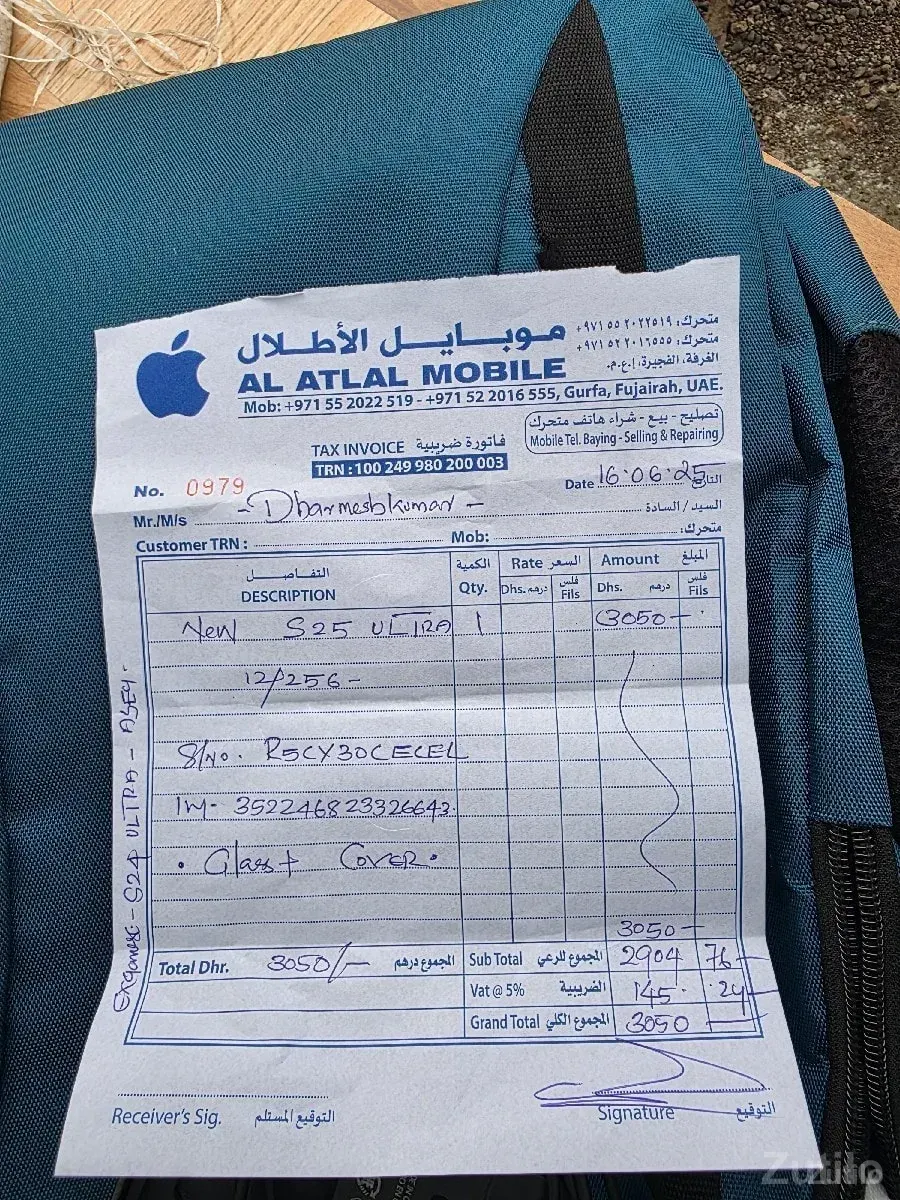 موبايل الأطلال
متحرك: ٩٧١٥٥ ٢٠٢٢٥١٩+
متحرك: ٩٧١٥٢ ٢٠١٦٥٥٥+
الغرفة، الفجيرة، إ.ع.م.
AL ATLAL MOBILE
Mob: +971 55 2022 519 - +971 52 2016 555, Gurfa, Fujairah, UAE.
تصليح - بيع - شراء هاتف متحرك
Mobile Tel. Baying - Selling & Repairing
TAX INVOICE فاتورة ضريبية
TRN : 100 249 980 200 003
No. 0979
Date 16.06.25 التاريخ
Mr./M/s - Dharmeshkumar - السيد / السادة
Customer TRN : Mob: متحرك:
التفاصيل الكمية Rate السعر Amount المبلغ
DESCRIPTION Qty. Dhs. درهم فلس Fils Dhs. درهم فلس Fils
New S25 ULTRA 1 3050-
12/256-
S/No. R5CY30CECEL
IM- 352246823326643.
. Glass + Cover.
3050-
Total Dhr. 3050/- المجموع درهم Sub Total المجموع الفرعي 2904 76
Vat @ 5% الضريبية 145. 24
Grand Total المجموع الكلي 3050
S24 ULTRA -
Receiver's Sig. التوقيع المستلم
Signature التوقيع